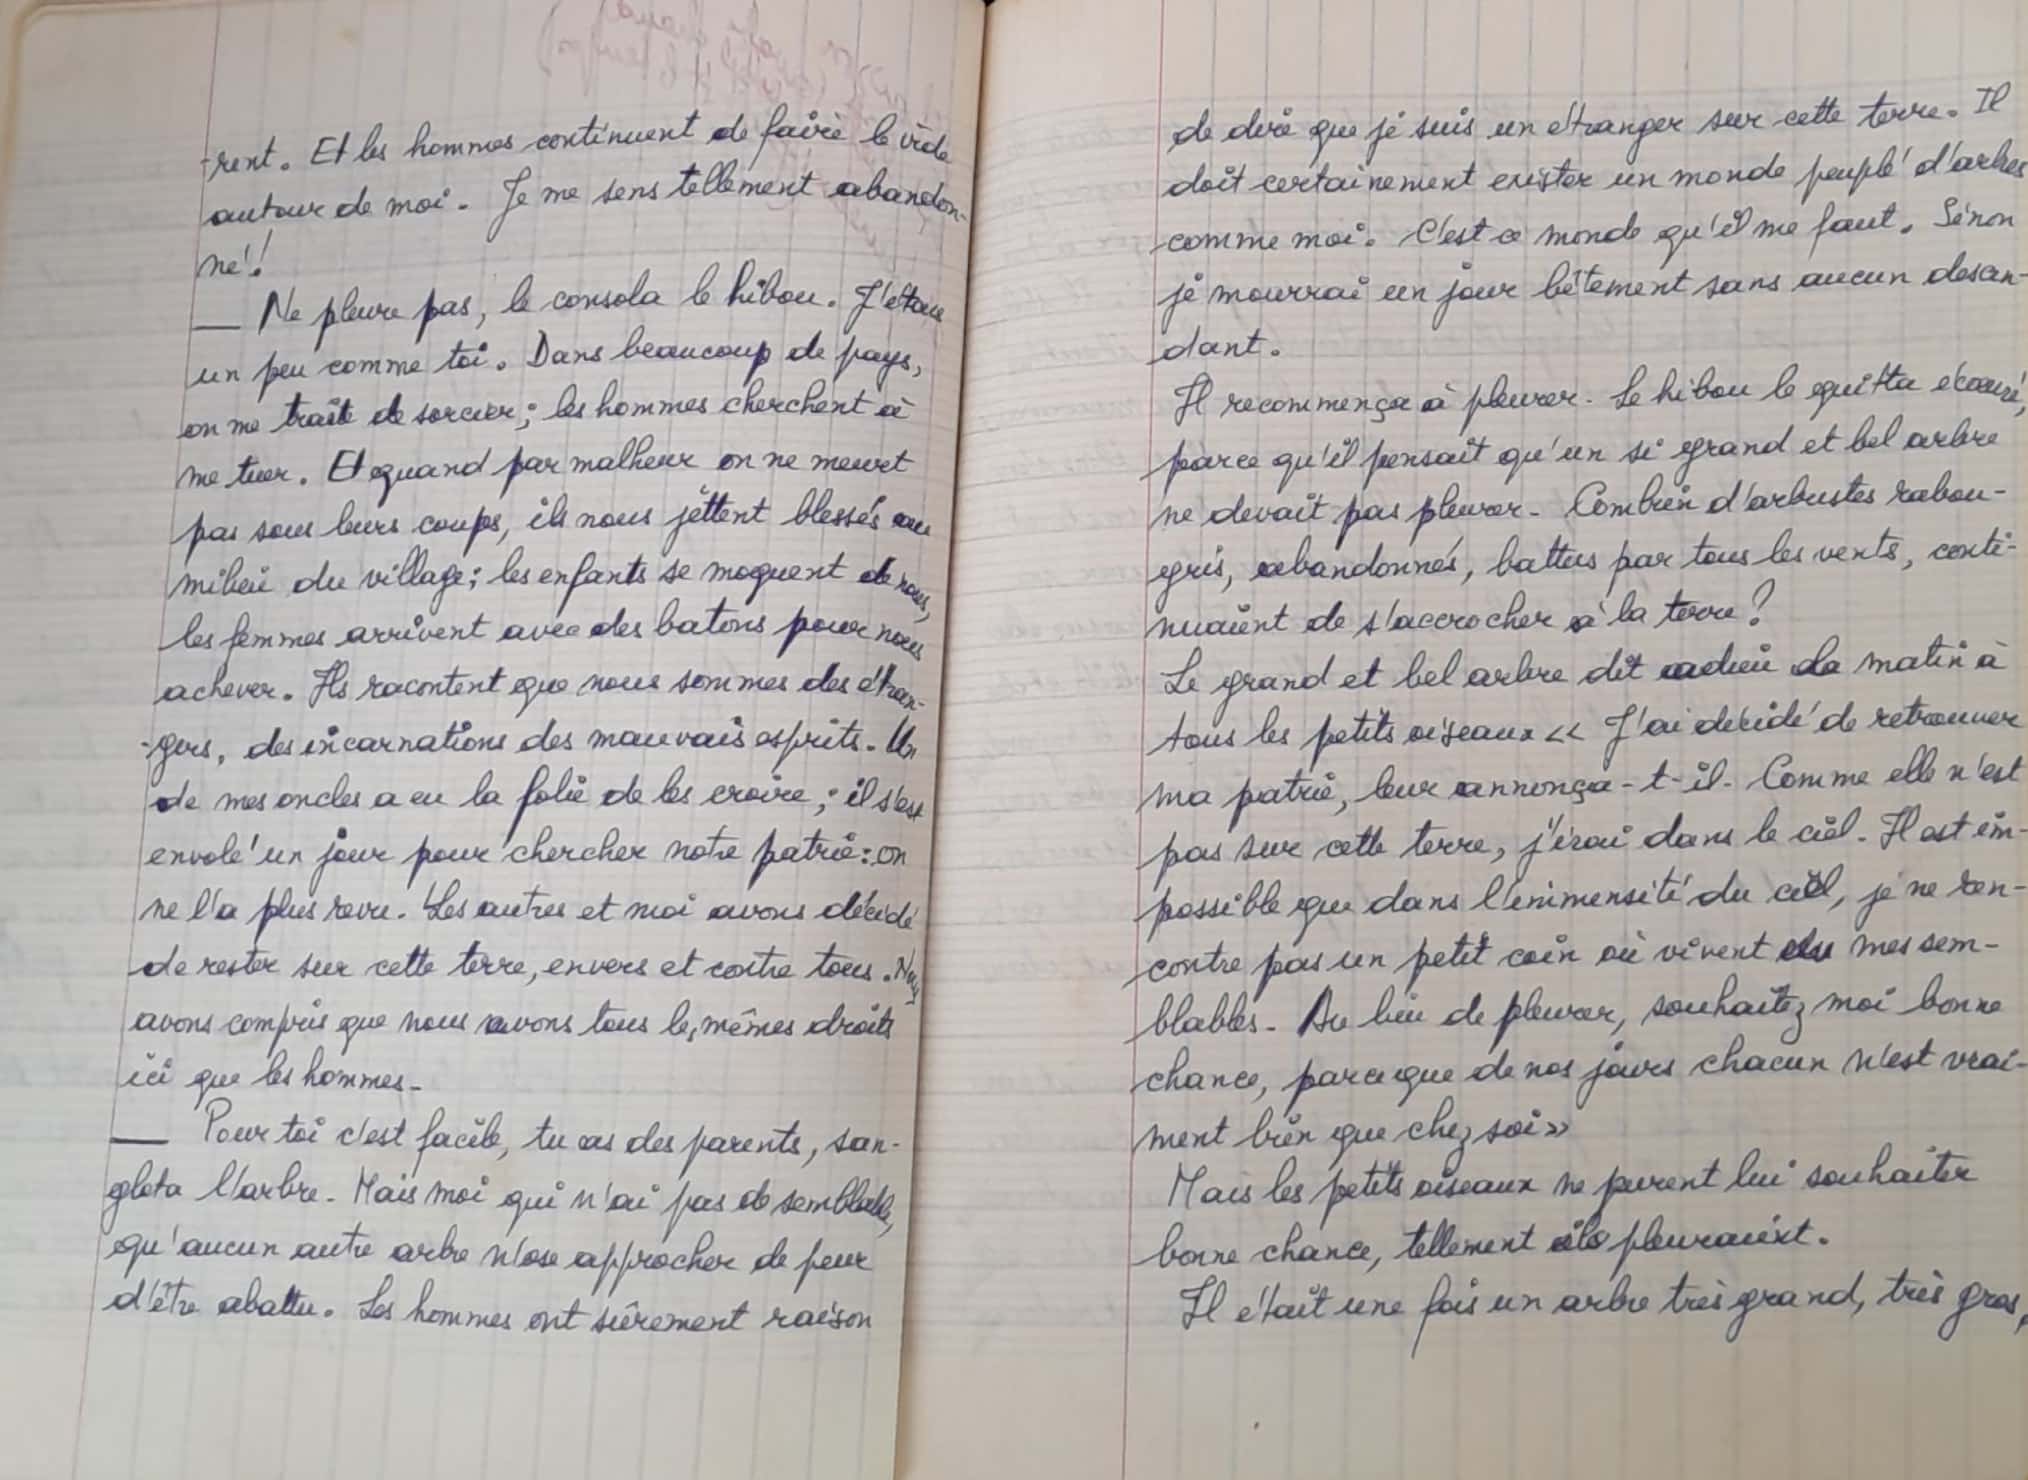 -rent. Et les hommes continuent de faire le vide
autour de moi. Je me sens tellement abandon-
né !
— Ne pleure pas, le consola le hibou. J'étais
un peu comme toi. Dans beaucoup de pays,
on me traite de sorcier ; les hommes cherchent à
me tuer. Et quand par malheur on ne meurt
pas sous leurs coups, ils nous jettent blessés au
milieu du village ; les enfants se moquent de nous,
les femmes arrivent avec des batons pour nous
achever. Ils racontent que nous sommes des étran-
-gers, des incarnations des mauvais esprits. Un
de mes oncles a eu la folie de les croire ; il s'est
envolé un jour pour chercher notre patrie : on
ne l'a plus revu. Les autres et moi avons décidé
de rester sur cette terre, envers et contre tous. Nous
avons compris que nous avons tous les mêmes droits
ici que les hommes.
— Pour toi c'est facile, tu as des parents, san-
glota l'arbre. Mais moi qui n'ai pas de semblable,
qu'aucun autre arbre n'ose approcher de peur
d'être abattu. Les hommes ont sûrement raison
de dire que je suis un étranger sur cette terre. Il
doit certainement exister un monde peuplé d'arbres
comme moi. C'est ce monde qu'il me faut. Sinon
je mourrai un jour bêtement sans aucun descen-
dant.
Il recommença à pleurer. Le hibou le quitta écoeuré,
parce qu'il pensait qu'un si grand et bel arbre
ne devait pas pleurer. Combien d'arbustes rabou-
gris, abandonnés, battus par tous les vents, conti-
nuaient de s'accrocher à la terre ?
Le grand et bel arbre dit adieu ce matin à
tous les petits oiseaux << J'ai décidé de retrouver
ma patrie, leur annonça-t-il. Comme elle n'est
pas sur cette terre, j'irai dans le ciel. Il est im-
possible que dans l'immensité du ciel, je ne ren-
contre pas un petit coin où vivent mes sem-
blables. Au lieu de pleurer, souhaitez moi bonne
chance, parceque de nos jours chacun n'est vrai-
ment bien que chez soi >>
Mais les petits oiseaux ne purent lui souhaiter
bonne chance, tellement ils pleuraient.
Il était une fois un arbre très grand, très gros,